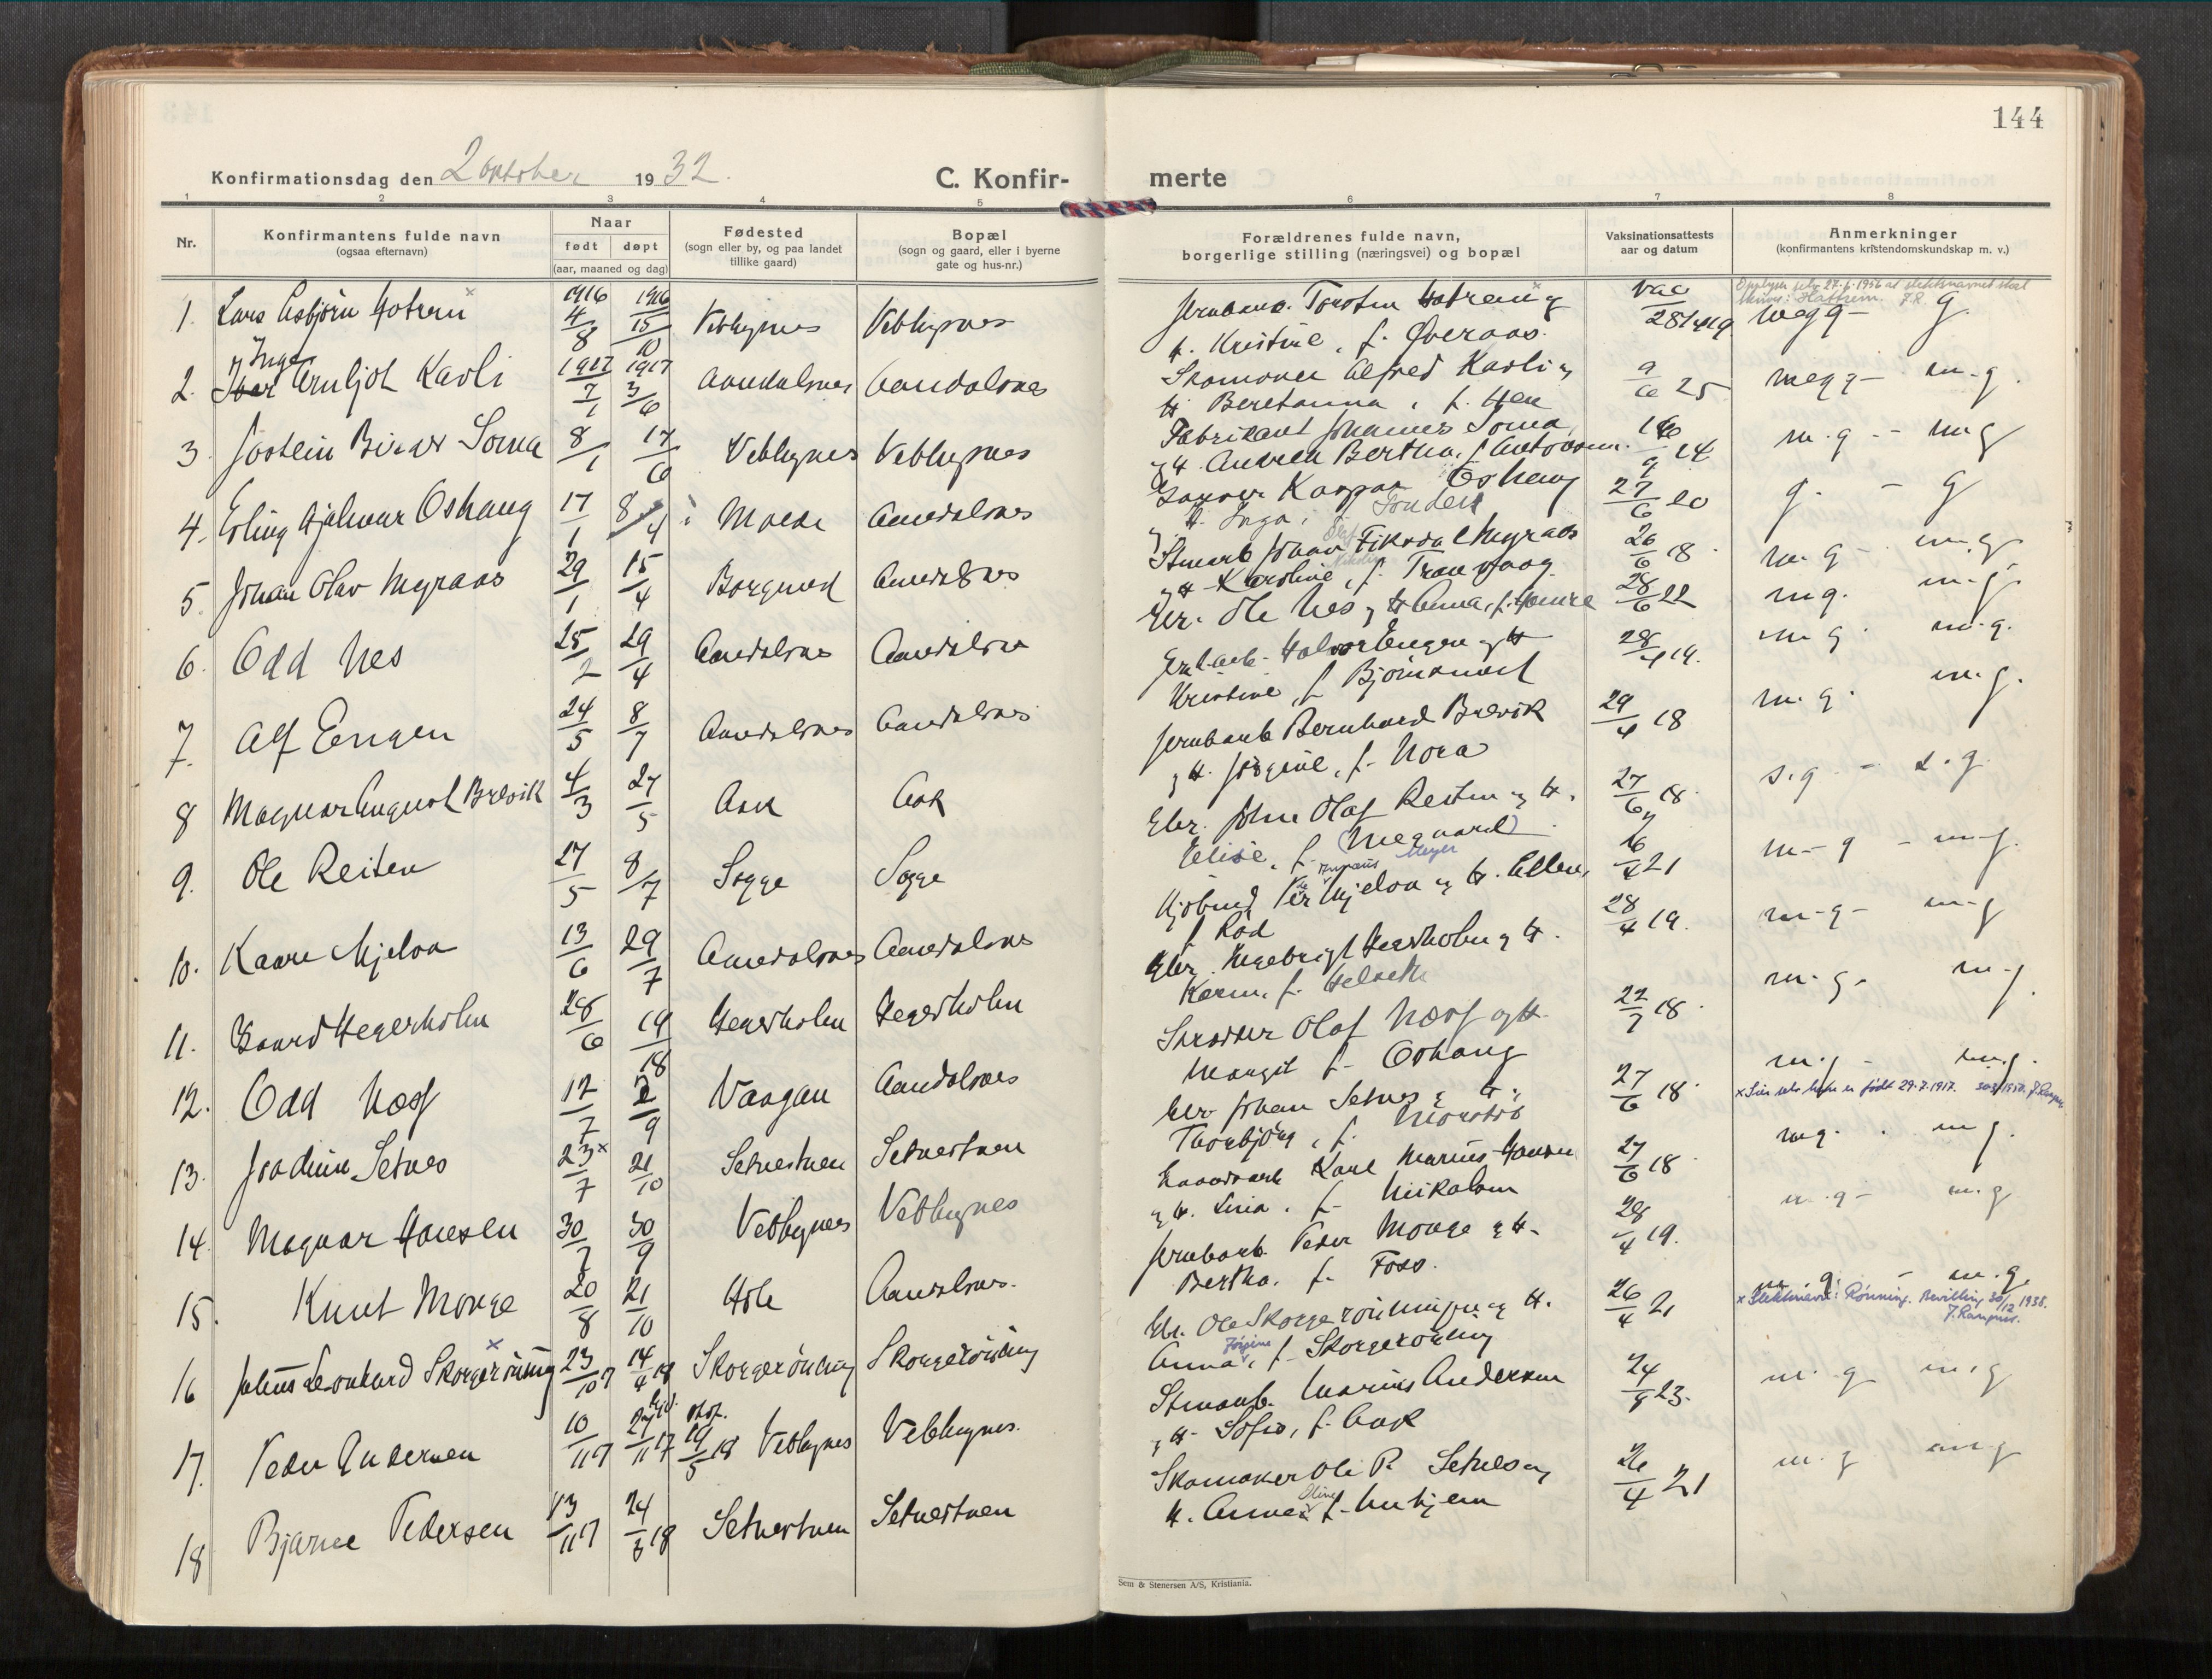 144
Konfirmationsdag den 2 oktober 1932.
C. Konfirmerte
1 2 3 4 5 6 7 8
Nr. Konfirmantens fulde navn (ogsaa efternavn) Naar født døpt (aar, maaned og dag) Fødested (sogn eller by, og paa landet tillike gaard) Bopæl (sogn og gaard, eller i byerne gate og hus-nr.) Forældrenes fulde navn, borgerlige stilling (næringsvei) og bopæl Vaksinationsattests aar og datum Anmerkninger (konfirmantens kristendomskundskap m. v.)
1. Lars Asbjörn Hatrem x 1916 4/8 1916 15/10 Veblugnes Veblugnes Jernbanea. Torsten Hatrem x og H. Kristine, f. Øveraas. vac 28/4 19 megg - g.
slektsnavnet skal skrives: Hattrem. J.R.
2. Inge Iver Arnljot Kavli 1917 7/1 1917 3/6 Aandalsnes Aandalsnes Skomaker Alfred Kavli og H. Beretanna, f. Hen 9/6 25 megg - m.g.
3. Jostein Birger Soma 8/1 17/6 Veblugnes Veblugnes Fabrikant Johannes Soma, og H. Andrea Bertha, f. 24 m.g - mg
4. Erling Hjalmar Oshaug 17/1 8/4 i Molde Aandalsnes Kaspar Oshaug og H. Inga, f. Sonder 27/6 20 g. - g
5. Johan Olav Myraas 29/1 15/4 Borgund Aandalsnes Johan Fiksdal Myraas og H. Karoline, f. Tranvaag 26/6 18 m.g - m.g
6. Odd Nes 25/2 29/4 Aandalsnes Aandalsnes Gbr. Ole Nes og H. Anna, f. Hamre 28/6 22 mg. m.g.
7. Alf Engen 24/5 8/7 Aandalsnes Aandalsnes Halvor Engen og H. Kristine, f. 28/4 19. m g. m.g.
8 Magnar August Brevik 4/3 27/5 Aak Aak Jernbanb Bernhard Brevik og H. Jørgine, f. Nora 29/4 18 m.g. m.g.
9. Ole Reiten 27/5 8/7 Sogge Sogge Gbr. John Olaf Reiten og H. Elise, f. (Megaard) 27/6 18. s.g - s.g.
10. Kaare Mjelva 13/6 29/7 Aandalsnes Aandalsnes Kjøbmd Per Meyer Mjelva og H. Ellen, f. Rød 21 m-g - m-g.
11. Baard Hegerholm 28/6 19/18 Hegerholm Hegerholm Gbr. Ingebrigt Hegerholm og H. Karen, f. Helseth 28/4 19. m-g- m-g
12. Odd Næss 12/7 2/9 Vaagan Aandalsnes Skrædder Olaf Næss og H. Margit f. Oshaug 22/7 18. m.g. m.g.
13. Joachim Setnes 23x/7 21/10 Setnestuen Setnestuen Gbr Johan Setnes og H. Thorbjörg, f. 27/6 18. m.g - m.g.
x er født 29.7.1917.
14. Magnar Hansen 30/7 30/9 Veblugnes Veblugnes Karl Marius Hansen og H. Lina, f. Mikalsen 27/6 18 mg. m g.
15. Knut Monge 20/8 21/10 Hole Aandalsnes. Jernbanb. Peder Monge og H. Bertha, f. Foss. 28/4 19. m.g- m.g
16 Julius Leonhard Skorgerönning x 23/10 17 14/4 18 Skorgerönning Skorgerönning Gbr. Ole Skorgerönningen og H. Anna Jørgine, f. Skorgerönning 26/4 21 m.g. - m.g.
x Slektsnavn: Rønning. Bevilling 30/12 1938. J. Rampus.
17. Peder Andersen 10/11 17 27/11 17 19/5 18 Veblugnes Veblugnes. Marius Andersen og H. Sofie, f. Aak 24/9 23. m. g m.g
18 Bjarne Pedersen 13/11 17 24/3 18 Setnestuen Setnestuen Skomaker Ole P. Setnes og H. Anne Oline f. 26/4 21 m.g m.g
Sem & Stenersen A/S, Kristiania.